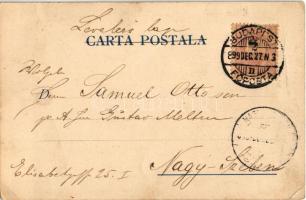 Levelező lap
CARTA POSTALA
BUDAPEST
899 DEC. 27. N 3
FŐPOSTA
Wohlgeb.
Herrn Samuel Otto sen
p. A. Gustav Melther
Nagy-Szeben
Elisabethg. 25. I